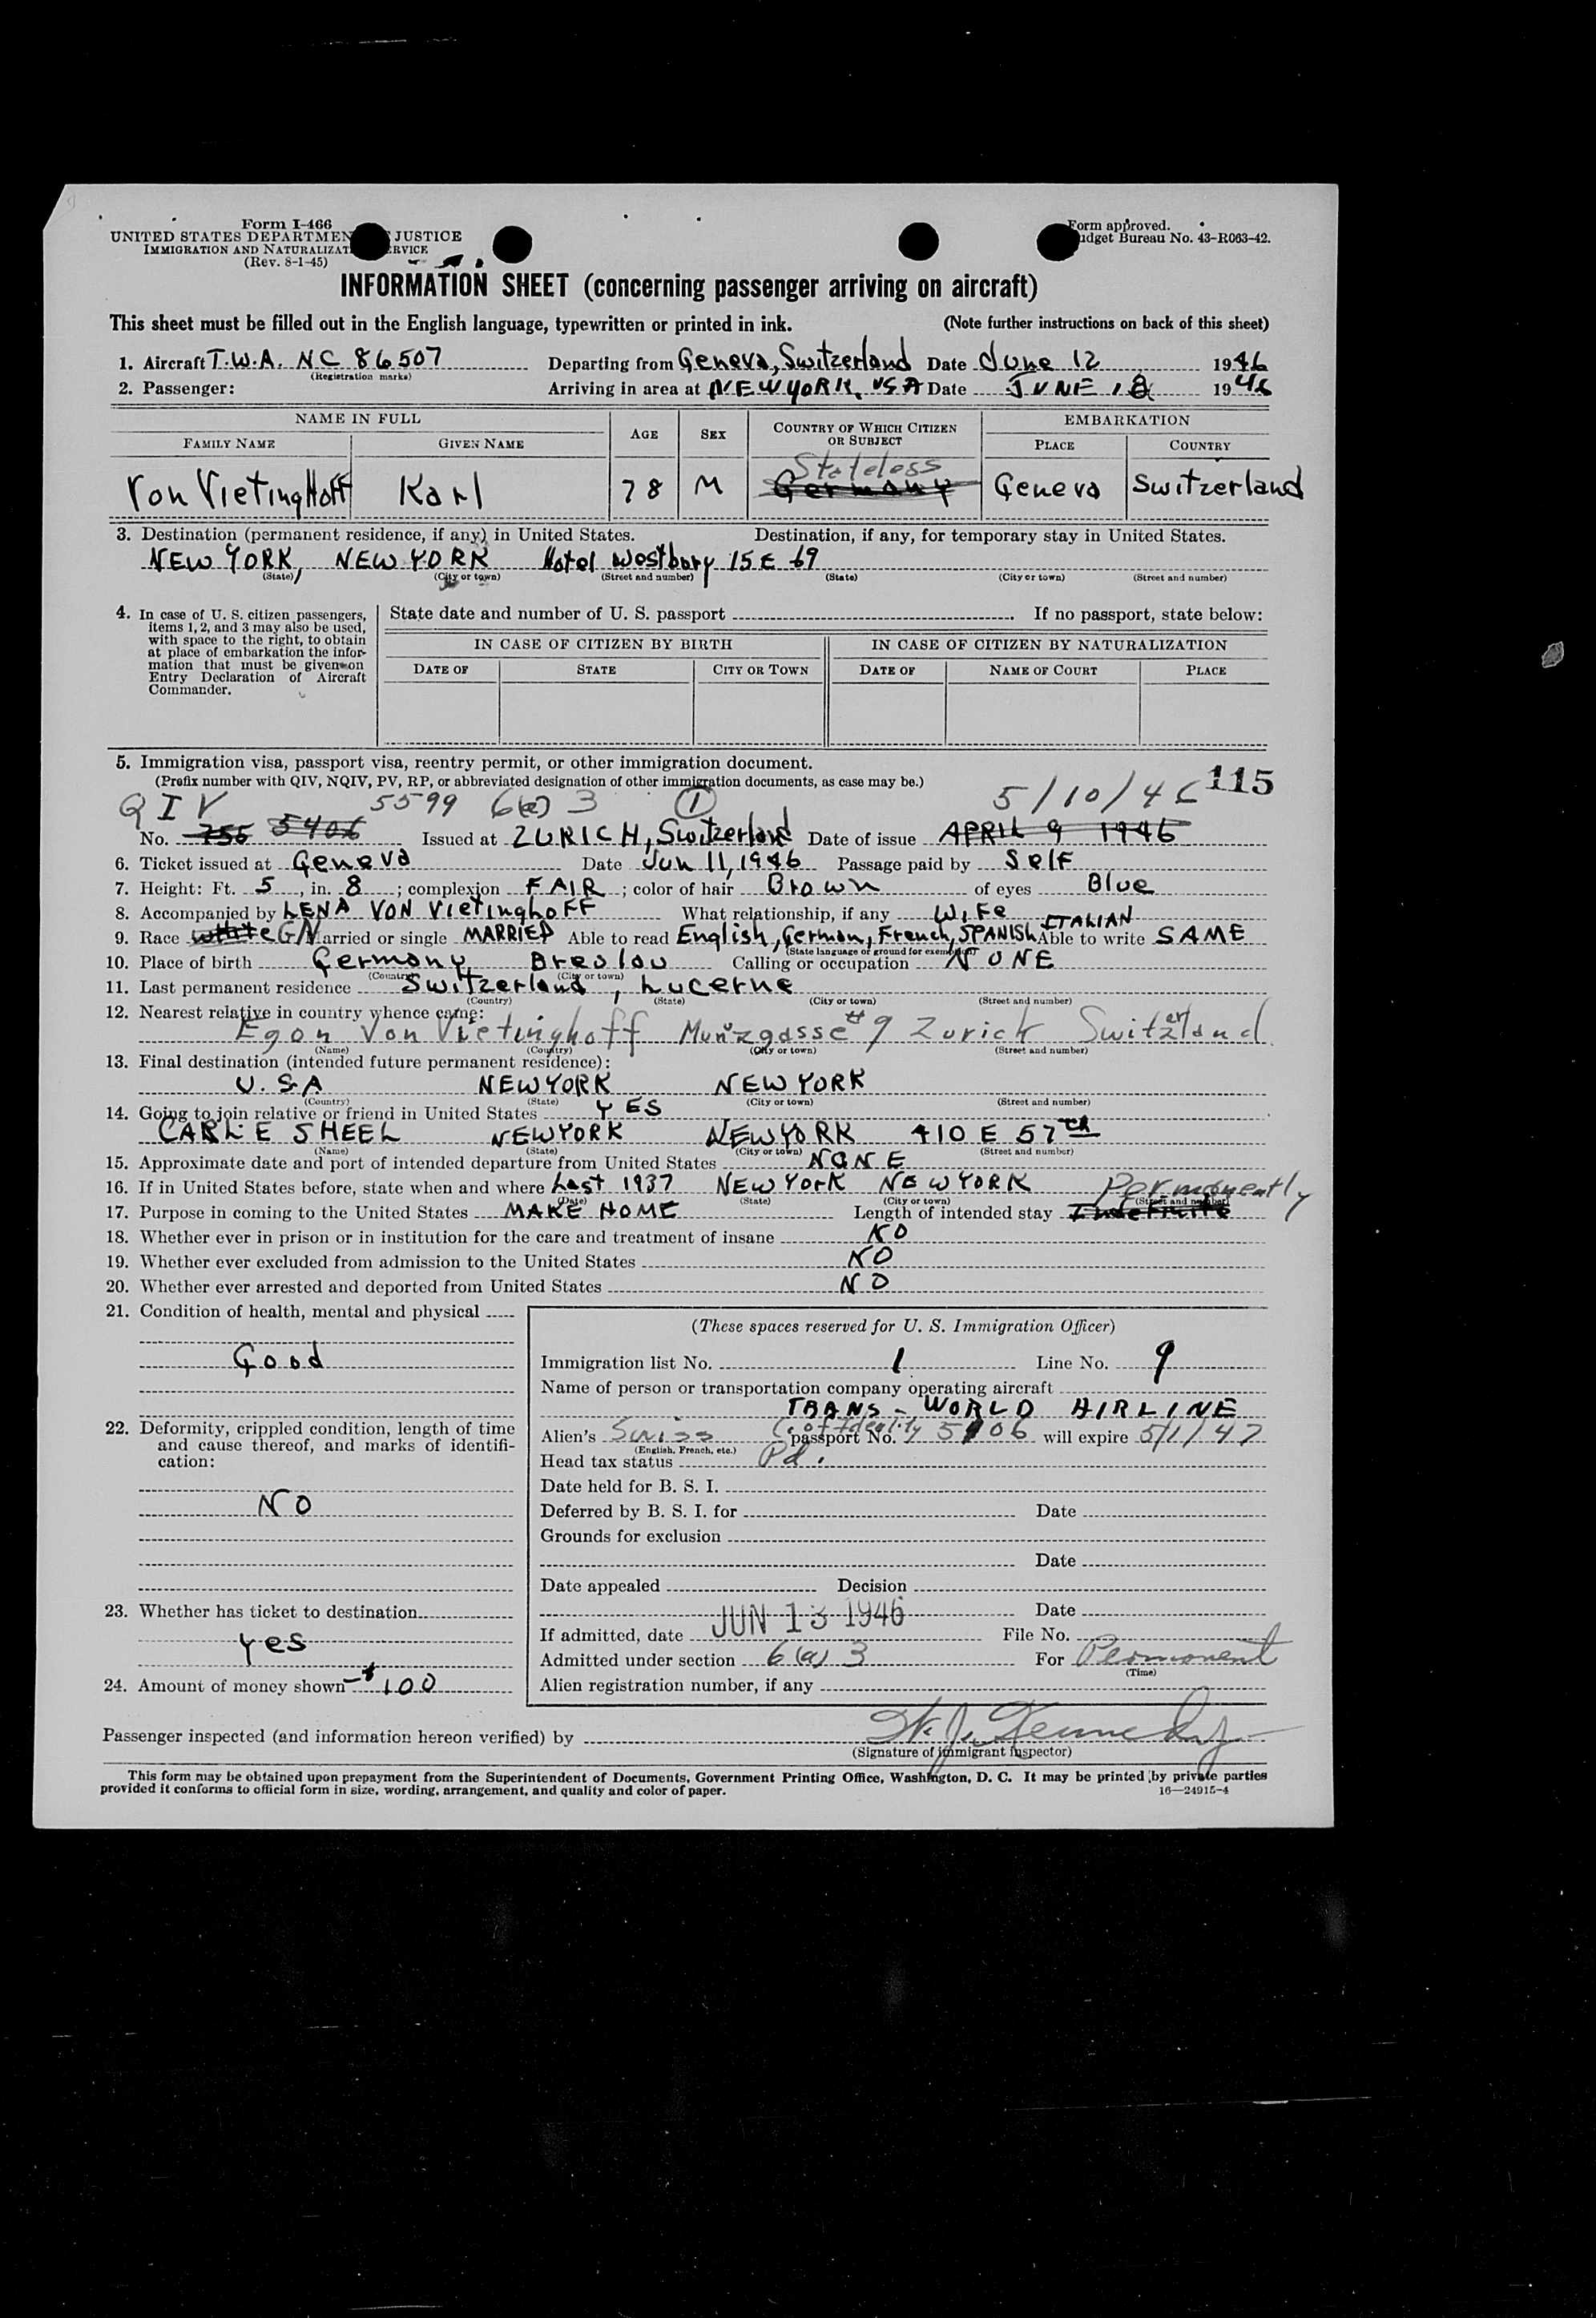 Form I-466
UNITED STATES DEPARTMEN JUSTICE
IMMIGRATION AND NATURALIZAT ERVICE
(Rev. 8-1-45)
Form approved.
udget Bureau No. 43-R063-42.
INFORMATION SHEET (concerning passenger arriving on aircraft)
This sheet must be filled out in the English language, typewritten or printed in ink. (Note further instructions on back of this sheet)
1. Aircraft T.W.A. NC 86507 Departing from Geneva, Switzerland Date June 12 1946
(Registration marks)
2. Passenger: Arriving in area at NEW YORK, USA Date JUNE 1946
NAME IN FULL AGE SEX COUNTRY OF WHICH CITIZEN OR SUBJECT EMBARKATION
FAMILY NAME GIVEN NAME PLACE COUNTRY
Stateless
Von Vietinghoff Karl 78 M Germany Geneva Switzerland
3. Destination (permanent residence, if any) in United States. Destination, if any, for temporary stay in United States.
NEW YORK, NEW YORK Hotel Westbury 15 E 69
(State) (City or town) (Street and number) (State) (City or town) (Street and number)
4. In case of U. S. citizen passengers, items 1, 2, and 3 may also be used, with space to the right, to obtain at place of embarkation the information that must be given on Entry Declaration of Aircraft Commander.
State date and number of U. S. passport . If no passport, state below:
IN CASE OF CITIZEN BY BIRTH IN CASE OF CITIZEN BY NATURALIZATION
DATE OF STATE CITY OR TOWN DATE OF NAME OF COURT PLACE
5. Immigration visa, passport visa, reentry permit, or other immigration document.
(Prefix number with QIV, NQIV, PV, RP, or abbreviated designation of other immigration documents, as case may be.) 115
QIV 5599 6(a) 3 1 5/10/46
No. 755 5406 Issued at ZURICH, Switzerland Date of issue APRIL 9 1946
6. Ticket issued at Geneva Date Jun 11, 1946 Passage paid by Self
7. Height: Ft. 5, in. 8; complexion FAIR; color of hair Brown of eyes Blue
8. Accompanied by LENA VON VIETINGHOFF What relationship, if any Wife
9. Race white GN Married or single MARRIED Able to read English, German, French, SPANISH ITALIAN Able to write SAME
(State language or ground for exemption)
10. Place of birth Germany Breslau Calling or occupation NONE
(Country) (City or town)
11. Last permanent residence Switzerland, Lucerne
(Country) (State) (City or town) (Street and number)
12. Nearest relative in country whence came:
Egon Von Vietinghoff Munzgasse # 9 Zurich Switzerland
(Name) (Country) (City or town) (Street and number)
13. Final destination (intended future permanent residence):
U.S.A NEW YORK NEW YORK
(Country) (State) (City or town) (Street and number)
14. Going to join relative or friend in United States YES
CARL E SHEEL NEW YORK NEW YORK 410 E 57th
(Name) (State) (City or town) (Street and number)
15. Approximate date and port of intended departure from United States NONE
16. If in United States before, state when and where Last 1937 NEW YORK NEW YORK
(Date) (State) (City or town) (Street and number)
Permanently
17. Purpose in coming to the United States MAKE HOME Length of intended stay Indefinite
18. Whether ever in prison or in institution for the care and treatment of insane NO
19. Whether ever excluded from admission to the United States NO
20. Whether ever arrested and deported from United States NO
21. Condition of health, mental and physical
Good
22. Deformity, crippled condition, length of time and cause thereof, and marks of identification:
NO
23. Whether has ticket to destination
Yes
24. Amount of money shown $100
(These spaces reserved for U. S. Immigration Officer)
Immigration list No. 1 Line No. 9
Name of person or transportation company operating aircraft
TRANS-WORLD AIRLINE
Alien's Swiss C. of Identity passport No. 5106 will expire 5/1/47
(English, French, etc.)
Head tax status Pd.
Date held for B. S. I.
Deferred by B. S. I. for Date
Grounds for exclusion
Date
Date appealed Decision
Date
If admitted, date JUN 13 1946 File No.
Admitted under section 6(a) 3 For Permanent
(Time)
Alien registration number, if any
Passenger inspected (and information hereon verified) by
(Signature of immigrant inspector)
This form may be obtained upon prepayment from the Superintendent of Documents, Government Printing Office, Washington, D. C. It may be printed by private parties
provided it conforms to official form in size, wording, arrangement, and quality and color of paper. 16—24915-4